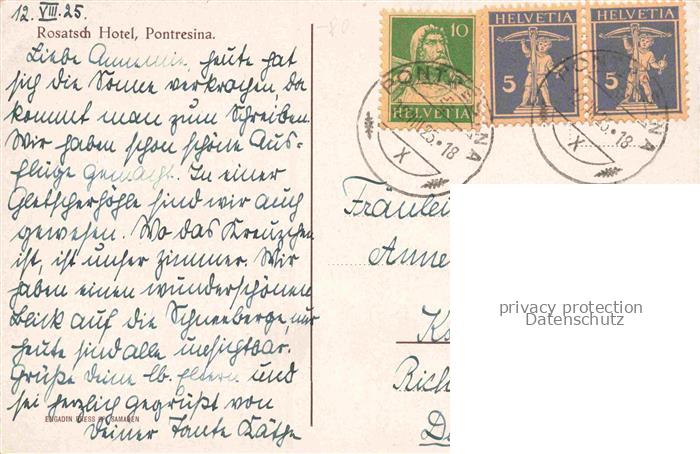 12. VIII. 25.
Rosatsch Hotel, Pontresina.
Liebe Annemie, heute hat
sich die Sonne verkrochen, da
kommt man zum Schreiben.
Wir haben schon schöne Aus-
flüge gemacht. In einer
Gletscherhöhle sind wir auch
gewesen. Wo das Kreuzchen
ist, ist unser Zimmer. Wir
haben einen wunderschönen
Blick auf die Schneeberge, nur
heute sind alle unsichtbar.
Grüße deine lb. Eltern und
sei herzlich gegrüßt von
deiner Tante Käthe
ENGADIN PRESS SAMADEN
10
HELVETIA
HELVETIA
5
HELVETIA
5
PONTRESINA
25.18
X
PONTRESINA
25.18
X
Fräulei
Anne
K
Rich
D
privacy protection
Datenschutz